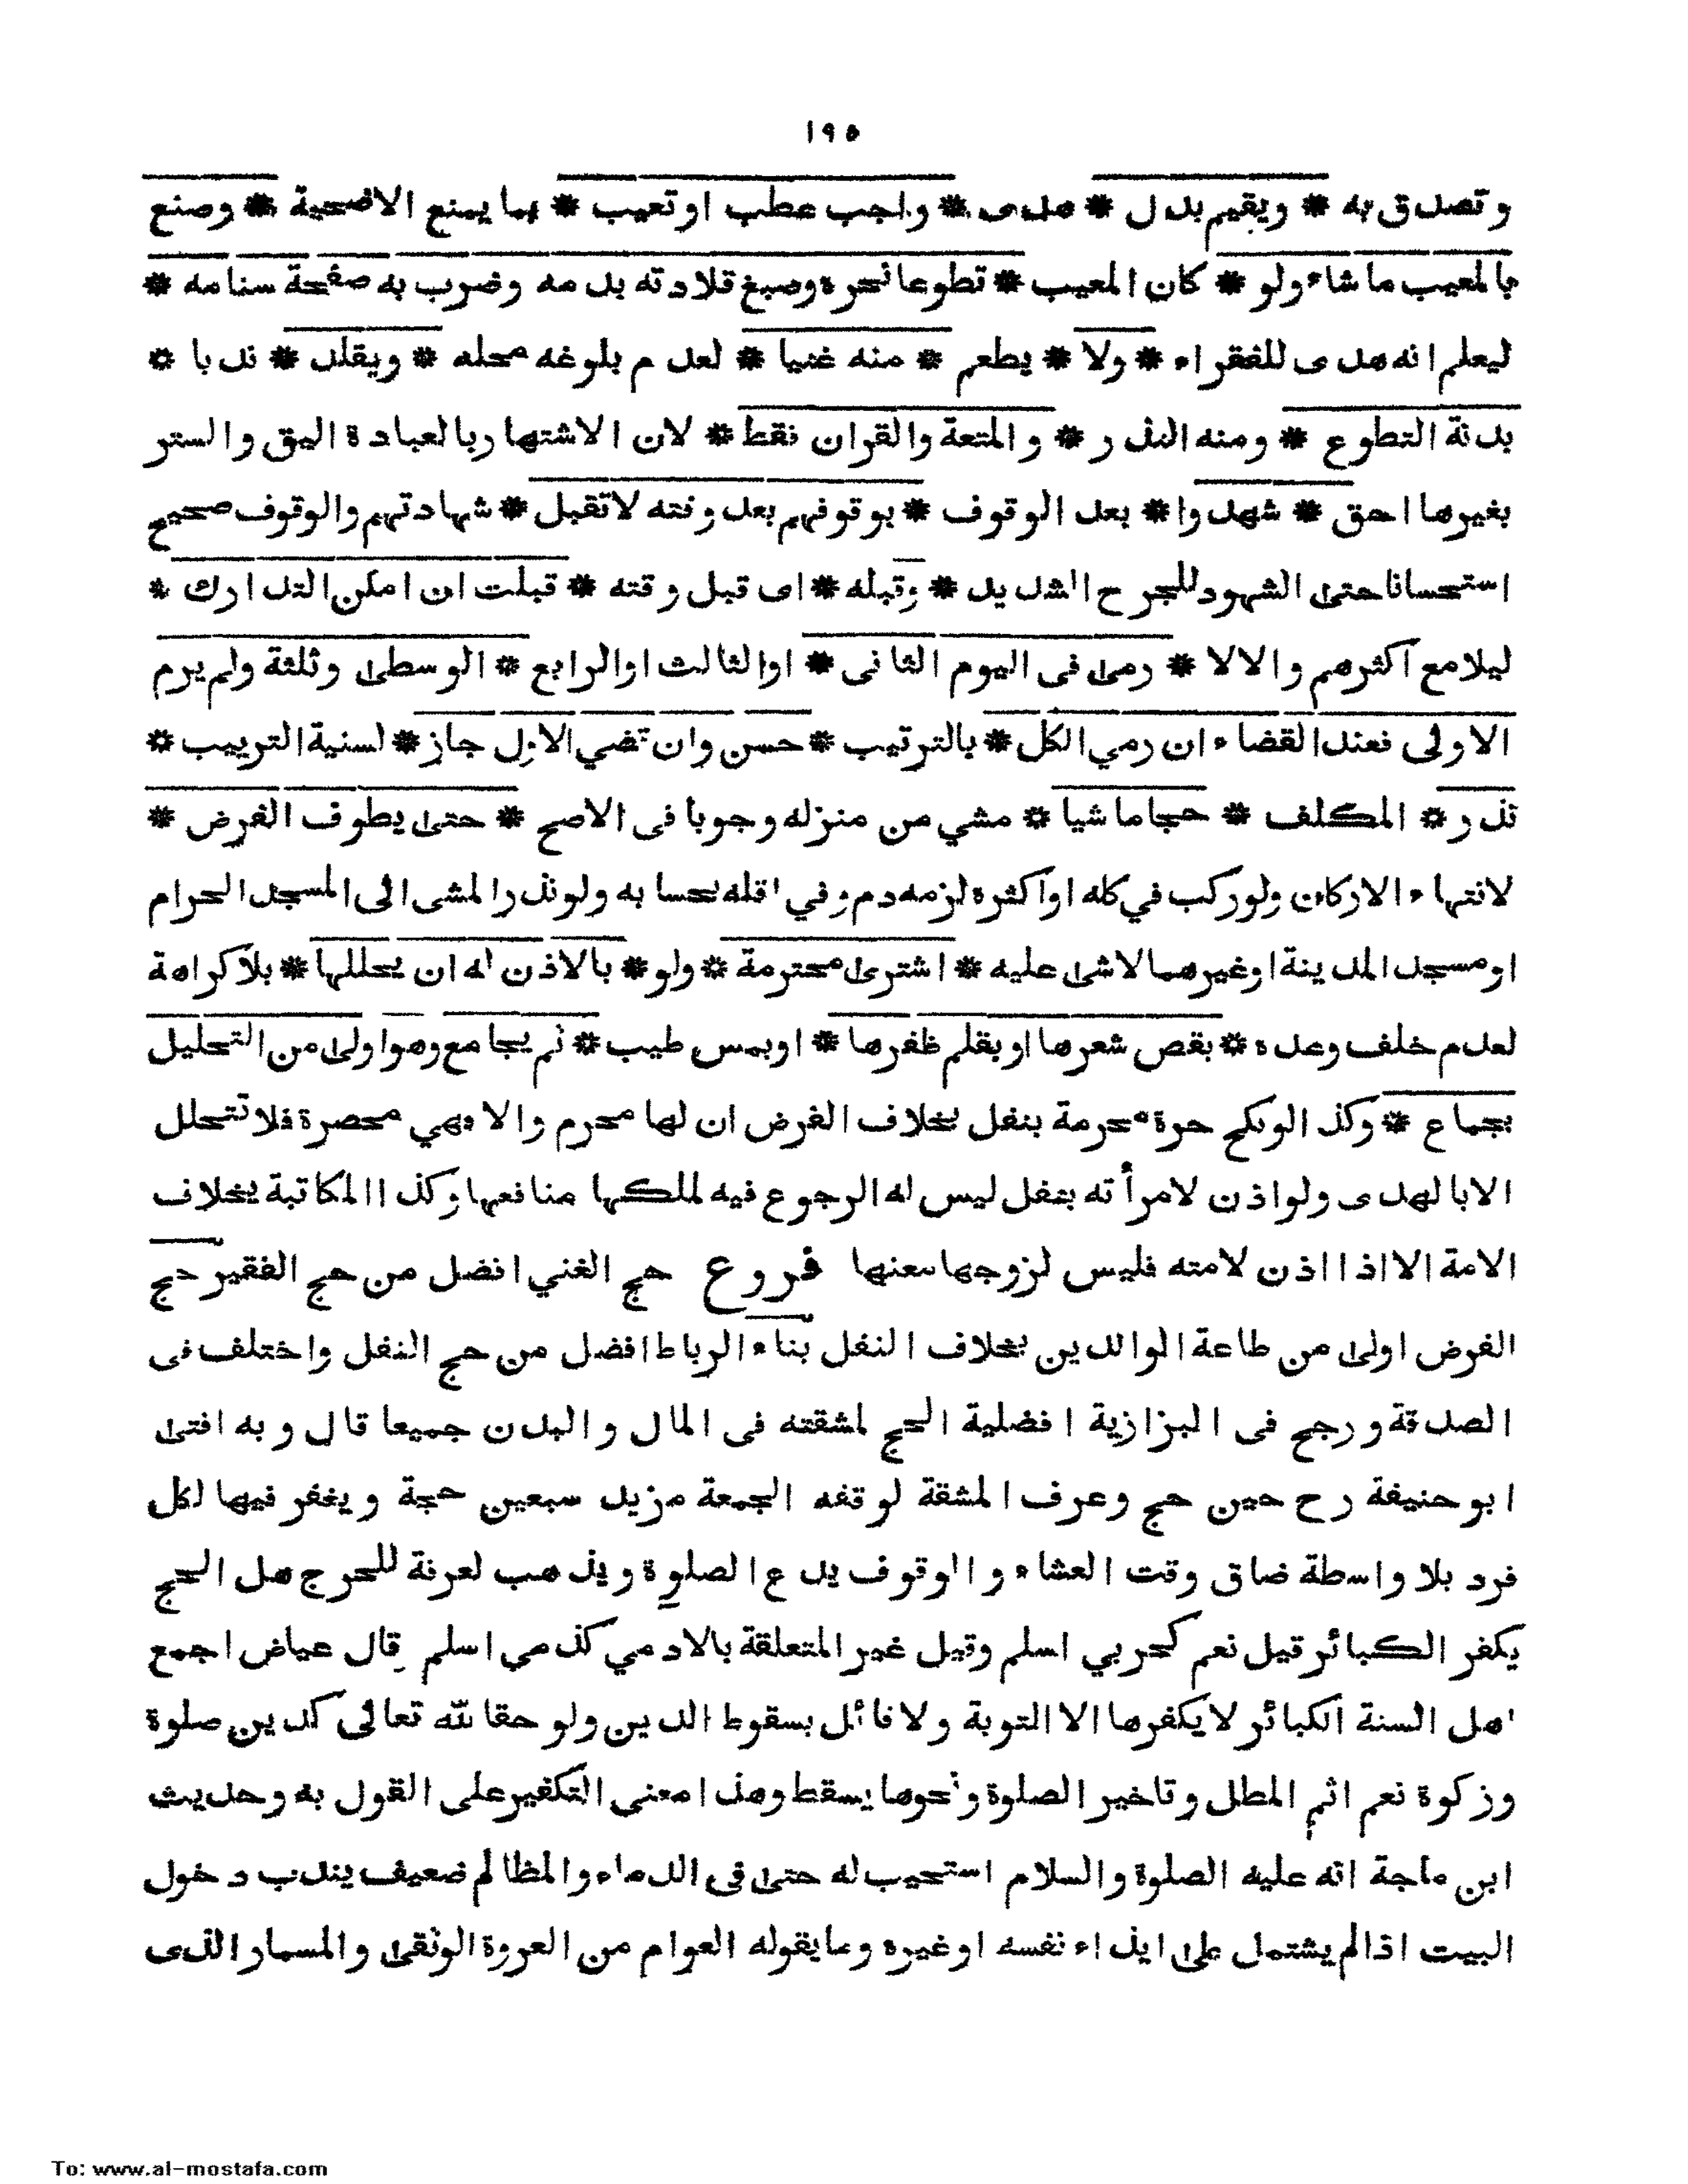 ١٩٥
وتصدق به * ويقيم بدل * هدى * واجب عطب اوتعيب * بما يمنع الاضحية * وصنع
بالمعيب ما شاء ولو * كان المعيب * تطوعا نحره وصبغ قلادته بدمه وضرب به صفحة سنامه *
ليعلم انه هدى للفقراء * ولا * يطعم * منه غنيا * لعدم بلوغه محله * ويقلد * ندبا *
بدنة التطوع * ومنه النذر * والمتعة والقران فقط * لان الاشتهار بالعبادة اليق والستر
بغيرها احق * شهدوا * بعد الوقوف * بوقوفهم بعد وقته لا تقبل * شهادتهم والوقوف صحيح
استحسانا حتى الشهود للجرح الشديد * وقبله * اى قبل وقته * قبلت ان امكن التدارك *
ليلا مع اكثرهم والا لا * رمى فى اليوم الثانى * اوالثالث اوالرابع * الوسطى وثلثة ولم يرم
الاولى فعند القضاء ان رمي الكل * بالترتيب * حسن وان قضي الاول جاز * لسنية الترتيب *
نذر * المكلف * حجا ماشيا * مشي من منزله وجوبا فى الاصح * حتى يطوف الفرض *
لانتهاء الاركان ولو ركب في كله اواكثره لزمه دم وفي اقله بحسابه ولو نذر المشى الى المسجد الحرام
او مسجد المدينة اوغيرهما لا شئ عليه * اشترى محرمة * ولو * بالاذن له ان يحللها * بلا كراهة
لعدم خلف وعده * بقص شعرها او بقلم ظفرها * اوبمس طيب * ثم يجامع وهو اولى من التحليل
بجماع * وكذا لو نكح حرة محرمة بنفل بخلاف الفرض ان لها محرم والا فهي محصرة فلا تتحلل
الا بالهدى ولو اذن لامرأته بنفل ليس له الرجوع فيه لملكها منافعها وكذا المكاتبة بخلاف
الامة الا اذا اذن لامته فليس لزوجها منعها فروع حج الغني افضل من حج الفقير حج
الفرض اولى من طاعة الوالدين بخلاف النفل بناء الرباط افضل من حج النفل واختلف فى
الصدقة ورجح فى البزازية افضلية الحج لمشقته فى المال والبدن جميعا قال وبه افتى
ابو حنيفة رح حين حج وعرف المشقة لوقفه الجمعة مزيد سبعين حجة ويغفر فيها لكل
فرد بلا واسطة ضاق وقت العشاء والوقوف يدع الصلوة ويذهب لعرفة للحرج هل الحج
يكفر الكبائر قيل نعم كحربي اسلم وقيل غير المتعلقة بالادمي كذمي اسلم قال عياض اجمع
اهل السنة الكبائر لا يكفرها الا التوبة ولا قائل بسقوط الدين ولو حقا لله تعالى كدين صلوة
وزكوة نعم اثم المطل وتاخير الصلوة ونحوها يسقط وهذا معنى التكفير على القول به وحديث
ابن ماجة انه عليه الصلوة والسلام استجيب له حتى فى الدماء والمظالم ضعيف يندب دخول
البيت اذا لم يشتمل على ايذاء نفسه اوغيره وما يقوله العوام من العروة الوثقى والمسمار الذى
To: www.al-mostafa.com